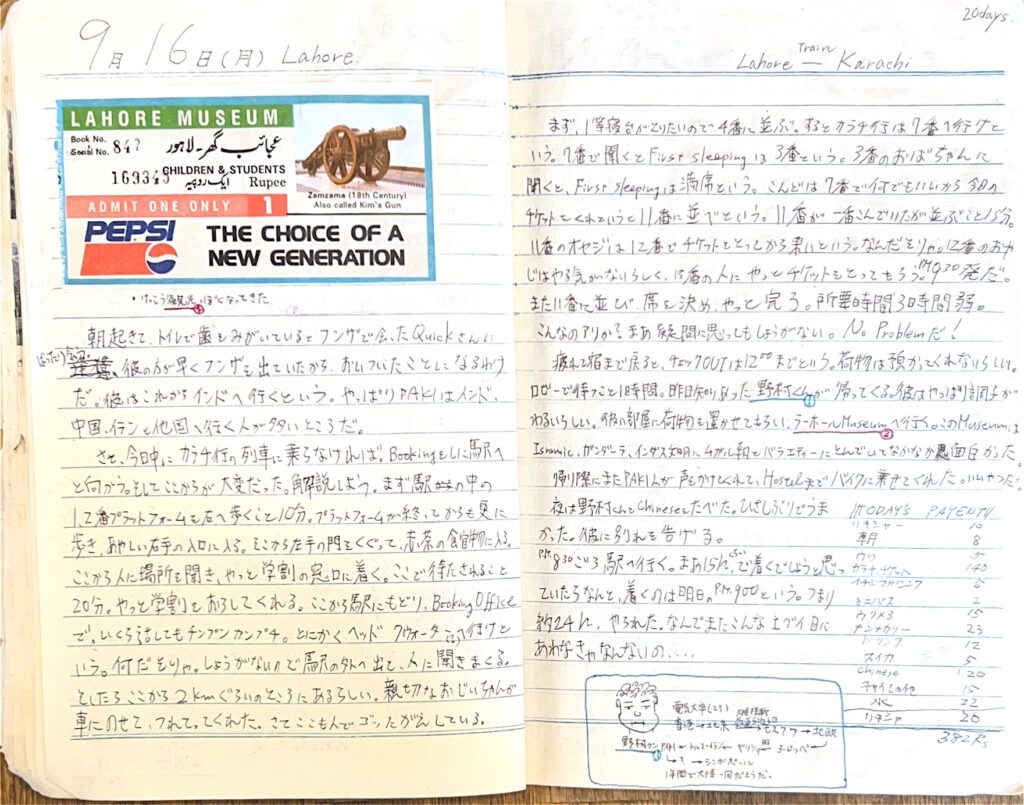 9月16日(月) Lahore.
LAHORE MUSEUM
Book No. 847
Serial No.
عجائب گھر-لاہور
169343
CHILDREN & STUDENTS
ایک روپیہ Rupee
ADMIT ONE ONLY 1
Zamzama (18th Century)
Also called Kim's Gun
PEPSI
THE CHOICE OF A
NEW GENERATION
・けっこう観光っぽくなってきた。
朝起きて、トイレで歯をみがいているとフンザで会ったQuickさんに
ばったり会う。彼の方が早くフンザを出ていたから、おいついたことになるわけ
だ。彼はこれからインドへ行くという。やっぱりPAKIはインド、
中国、イランと他国へ行く人が多いところだ。
さて、今日中にカラチ行の列車に乗らなければ。Bookingをしに馬駅へ
と向かう。そしてここからが大変だった。解説しよう。まず駅の中の
1、2番プラットフォームを右へ歩くこと10分。プラットフォームが終ってからも更に
歩き、あやしい右手の入口に入る。そこから左手の門をくぐって、赤茶の建物に入る。
ここから人に場所を聞き、やっと学割の窓口に着く。ここで待たされること
20分。やっと学割をおろしてくれる。ここから駅にもどり、Booking Office
で、いくら話してもチンプンカンプン。とにかくヘッドクウォーターへ行けと
いう。何だそりゃ。しょうがないので駅の外へ出て、人に聞きまくる。
としたらここから2kmぐらいのところにあるらしい。親切なおじいちゃんが
車にのせて、つれてってくれた。さてここも人でゴッたがえしている。
20days.
Train
Lahore — Karachi
まず、1等寝台がとりたいので4番に並ぶ。するとカラチ行は7番へ行けと
いう。7番で聞くとFirst sleepingは3番という。3番のおばちゃんに
聞くと、First sleepingは満席という。こんどは7番で何でもいいから今日の
チケットをくれというと11番に並べという。11番が一番こんでいたが並ぶこと15分。
11番のオヤジは12番でチケットをとってから来いという。なんだそりゃ。12番のおや
じはやる気がないらしく、13番の人にやっとチケットをとってもらう。PM9:30発だ。
また11番に並び席を決め、やっと完了。所要時間3時間弱。
こんなのアリか?まあ疑問に思ってもしょうがない。No Problemだ!
疲れて宿まで戻ると、チェックOUTは12:00までという。荷物は預かってくれないらしい。
ロビーで待つこと1時間。昨日知りあった野村くんが帰ってくる。彼はやっぱり調子が
わるいらしい。彼の部屋に荷物を置かせてもらい、ラーホールMuseumへ行く。このMuseumは
Islamic、ガンダーラ、インダス文明にムガル朝とバラエティーにとんでいてなかなか面白かった。
帰り際にまたPAKI人が声をかけてくれて、Hostelまでバイクに乗せてくれた。いいやつだ。
夜は野村くんとChineseをたべた。ひさしぶりでうま
かった。彼に別れを告げる。
PM8:30ごろ駅へ行く。まあ15hぐらいで着くでしょうと思っ
ていたらなんと、着くのは明日のPM9:00という。つまり
約24h。やられた。なんでまたこんな土ヅイ目に
あわなきゃなんないの....
TODAYS PAYENTU
リキシャー 10
朝 8
5
カラチ、チケット 140
5
ミニバス 2
15
ナンカリー 23
ドリンク 12
スイカ 5
Chinese 120
チャイその他 15
水 22
リキシャ 20
382Rs
電気大卒(25)
香港→北京→モスクワ→北欧
野村クン PAKI←トルコ・イラン←ギリシャ←ヨーロッパ←
シンガポール
1年間で大陸一周だそうだ。